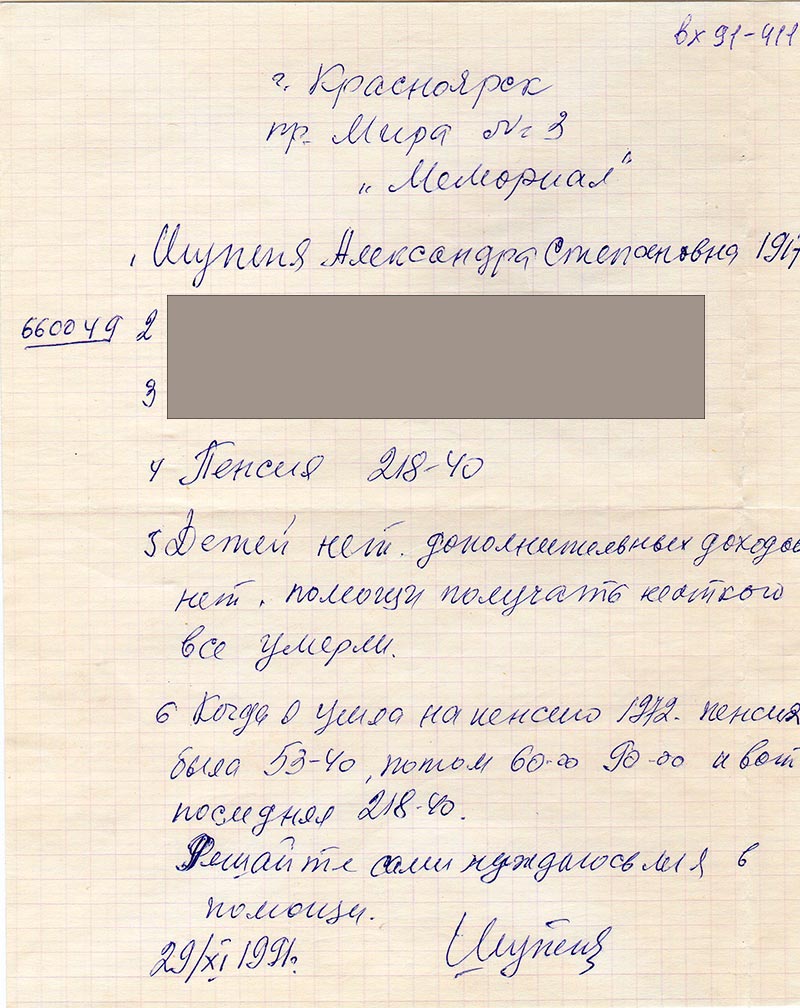 вх 91-411
г. Красноярск
пр. Мира № 3
„Мемориал"
1 Шупеня Александра Степановна 1917
660049 2
3
4 Пенсия 218-40
5 Детей нет. дополнительных доходов
нет. помощи получать неоткого
все умерли.
6 Когда я ушла на пенсию 1972. пенсия
была 53-40, потом 60-00 90-00 и вот
последняя 218-40.
Решайте сами нуждаюсь ли я в
помощи.
29/XI 1991г. Шупеня